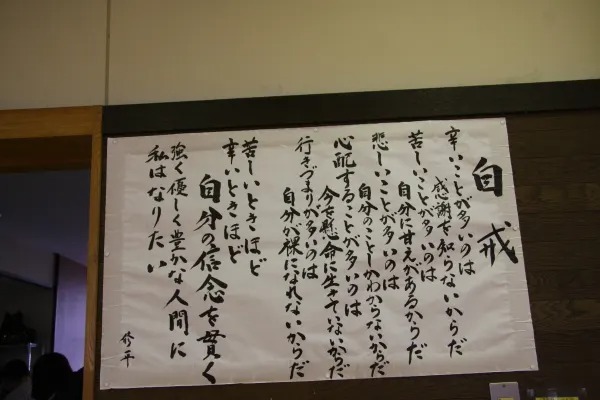 自戒
辛いことが多いのは
感謝を知らないからだ
苦しいことが多いのは
自分に甘えがあるからだ
悲しいことが多いのは
自分のことしかわからないからだ
心配することが多いのは
今を懸命に生きていないからだ
行きづまりが多いのは
自分が裸になれないからだ
苦しいときほど
辛いときほど
自分の信念を貫く
強く優しく豊かな人間に
私はなりたい
修平